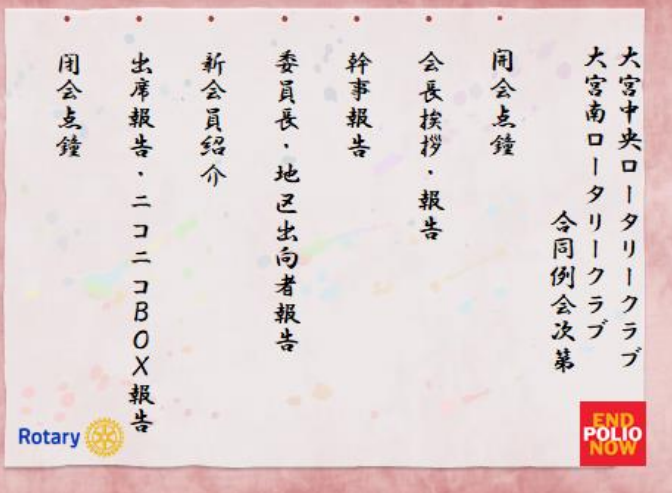 大宮中央ロータリークラブ
大宮南ロータリークラブ
合同例会次第
開会点鐘
会長挨拶・報告
幹事報告
委員長・地区出向者報告
新会員紹介
出席報告・ニコニコBOX報告
閉会点鐘
Rotary
END
POLIO
NOW